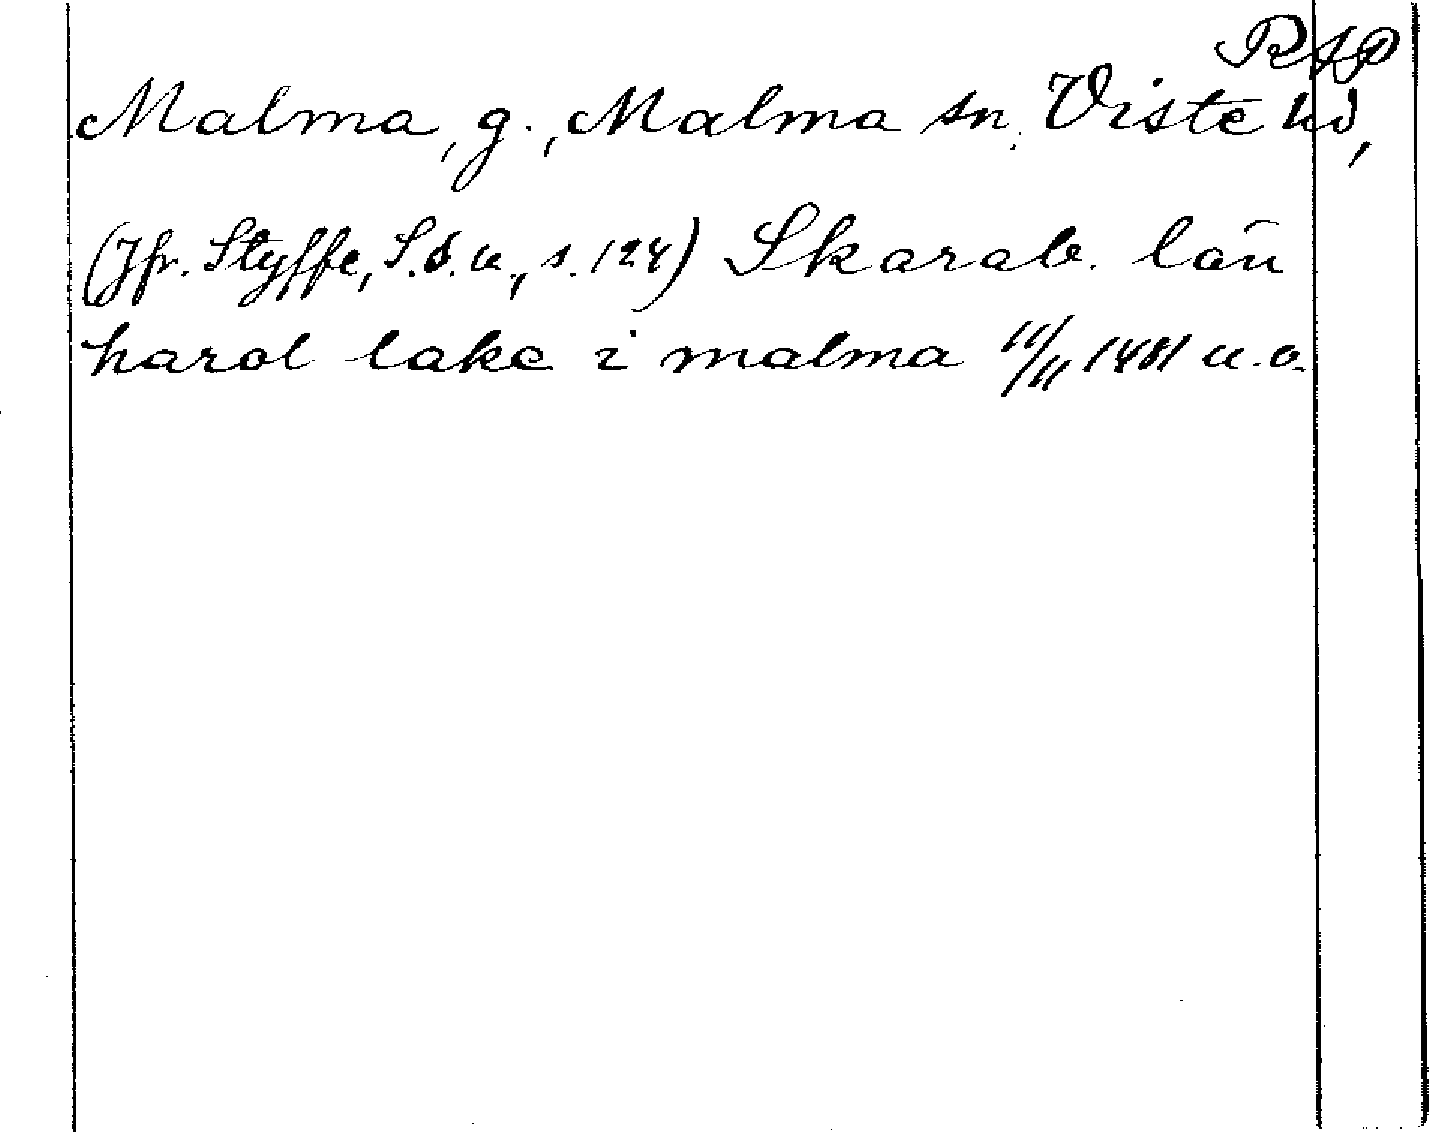 RAP
Malma, g., Malma sn. Viste hd,
(Jfr. Styffe, S.d.u., s. 124) Skarab. län
harol lake i malma 10/11 1481 u.o.